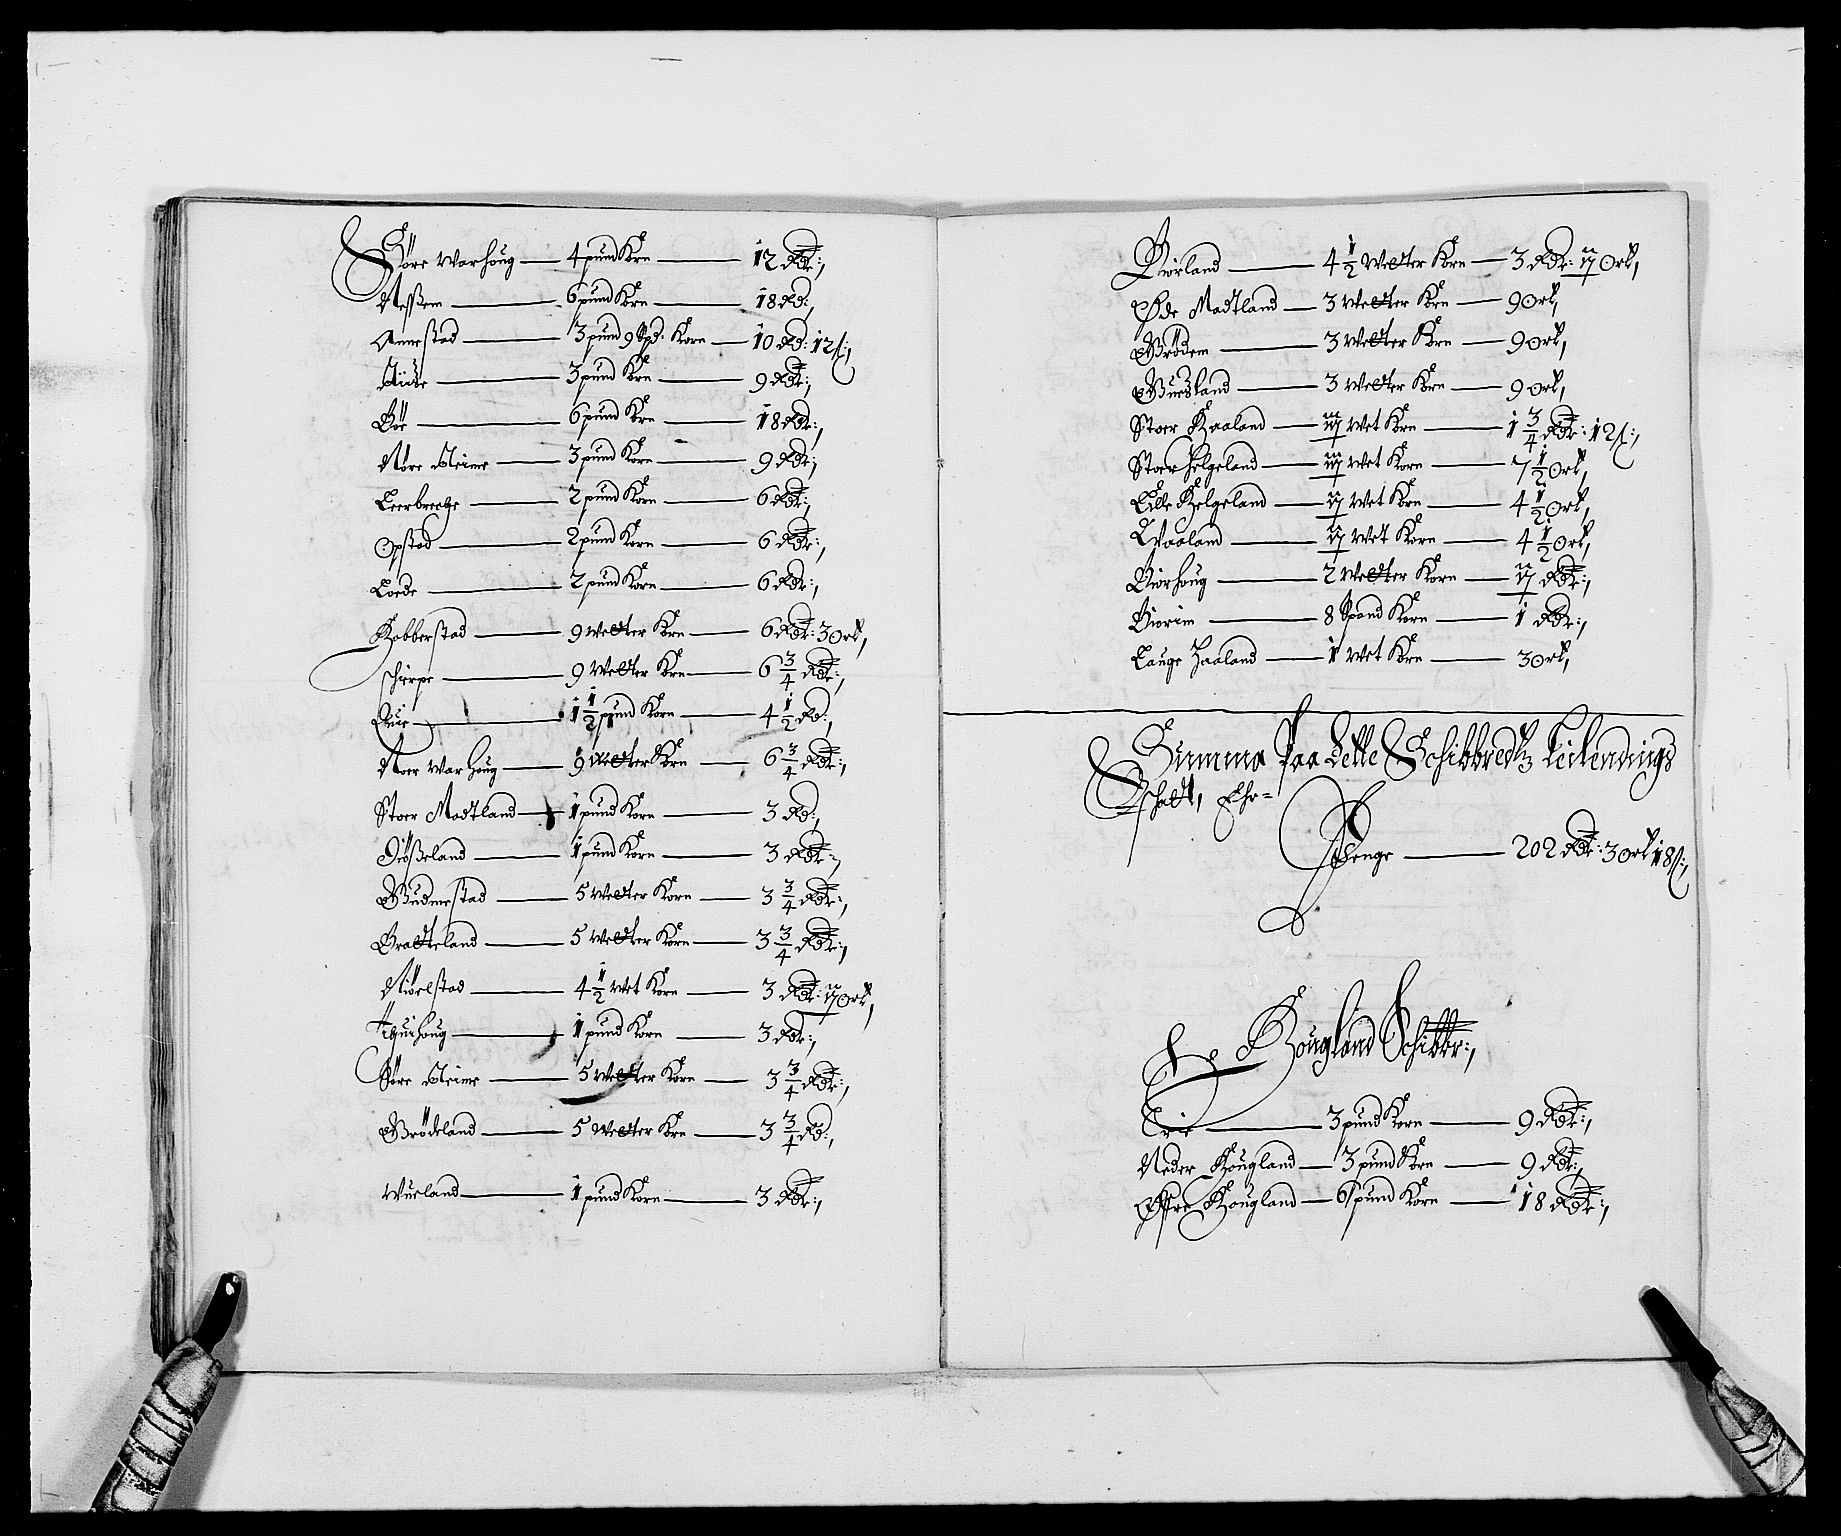 Söre Warhoug — 4 pund Korn — 12 Rdr:,
Nessem — 6 pund Korn — 18 Rd:,
Annestad — 3 pund 9 Spd: Korn — 10 Rd: 12 s:,
— 3 pund Korn — 9 Rdr:,
Böe — 6 pund Korn — 18 Rdr:,
Nöre Reime — 3 pund Korn — 9 Rdr:,
Leerbrecke — 2 pund Korn — 6 Rdr:,
Opstad — 2 pund Korn — 6 Rdr:,
Loede — 2 pund Korn — 6 Rdr:,
Hobberstad — 9 Wetter Korn — 6 Rdr: 3 ort,
Schierpe — 9 Wetter Korn — 6 3/4 Rdr:,
Quie — 1 1/2 pund Korn — 4 1/2 Rd:,
Noer Warhoug — 9 Wetter Korn — 6 3/4 Rdr:,
Stoer Madtland — 1 pund Korn — 3 Rd:,
Diösseland — 1 pund Korn — 3 Rdr:,
Gudmestad — 5 Wetter Korn — 3 3/4 Rdr:,
Bratteland — 5 Wetter Korn — 3 3/4 Rdr:,
Niöelstad — 4 1/2 Wet Korn — 3 Rdr: ij ort,
Tquihoug — 1 pund Korn — 3 Rdr:,
Söre Reime — 5 Wetter Korn — 3 3/4 Rdr:,
Grödeland — 5 Wetter Korn — 3 3/4 Rd:,
Wueland — 1 pund Korn — 3 Rdr:,
Biorland — 4 1/2 Wetter Korn — 3 Rdr: ij ort,
Øde Madtland — 3 Wetter Korn — 9 ort,
Grödem — 3 Wetter Korn — 9 ort,
Guesland — 3 Wetter Korn — 9 ort,
Stoer Haaland — iij Wet Korn — 1 3/4 Rdr: 12 s:,
Stoer Helgeland — iij Wet Korn — 7 1/2 ort,
Lille Helgeland — ij Wet Korn — 4 1/2 ort,
Waaland — ij Wet Korn — 4 1/2 ort,
Biorhoug — 2 Wetter Korn — ij Rdr:,
Biorim — 8 Spand Korn — 1 Rdr:,
Lauge Haaland — 1 Wet Korn — 3 ort,
Summa Paa dette Schibbredtz Leilendings
Schatt, Ehr=
Penge — 202 Rdr: 3 ort 18 s:,
Hougland Schibbr:,
— 3 pund Korn — 9 Rdr:,
Neder Hougland — 3 pund Korn — 9 Rdr:,
Øfre Hougland — 6 pund Korn — 18 Rdr:,